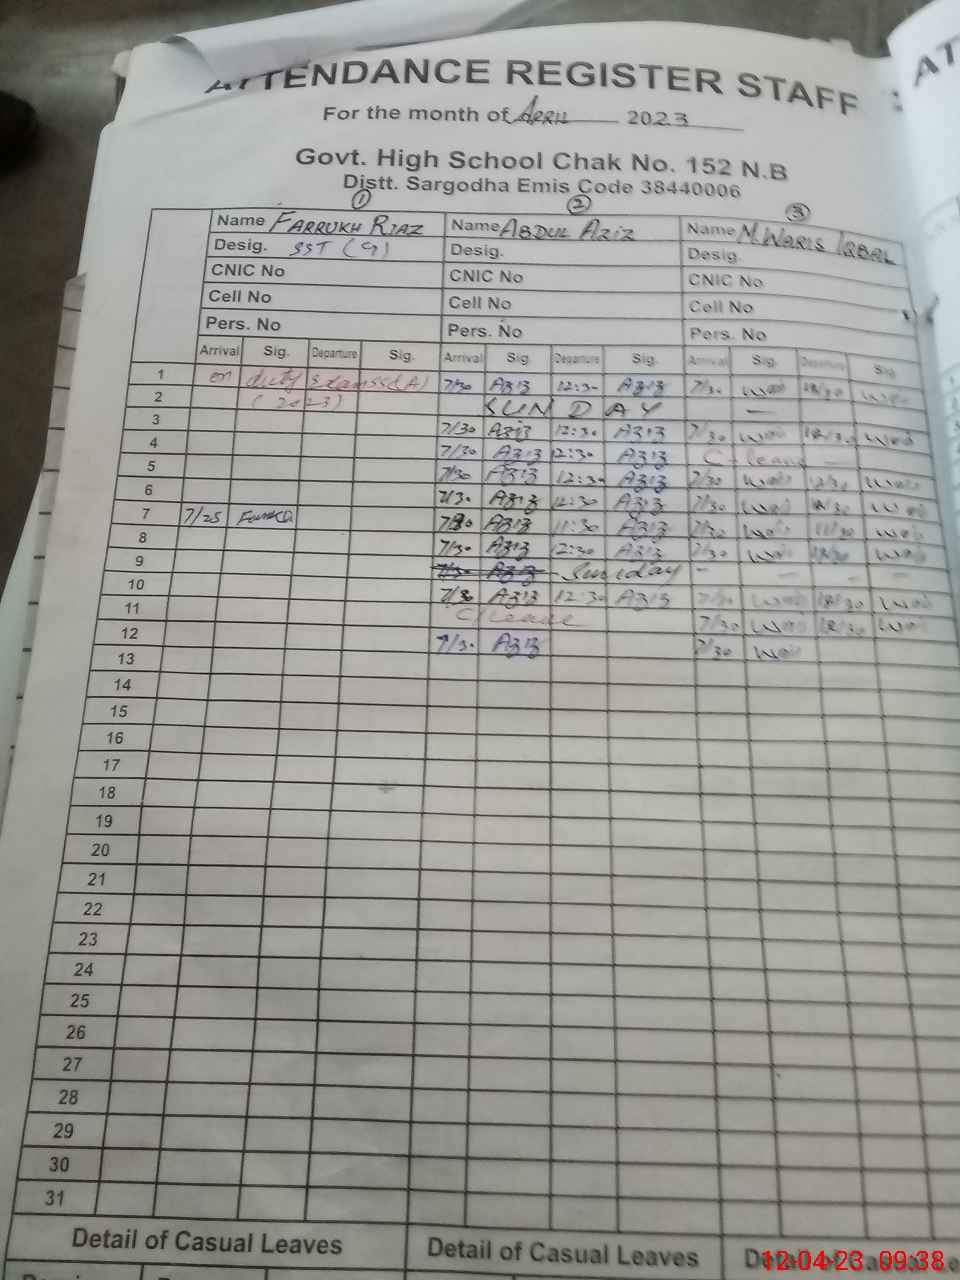 ATTENDANCE REGISTER STAFF
For the month of APRIL 2023
Govt. High School Chak No. 152 N.B
Distt. Sargodha Emis Code 38440006
1 2 3
Name FARRUKH RIAZ Name ABDUL AZIZ Name M. WARIS IQBAL
Desig. SST (G) Desig. Desig.
CNIC No CNIC No CNIC No
Cell No Cell No Cell No
Pers. No Pers. No Pers. No
Arrival Sig. Departure Sig. Arrival Sig. Departure Sig. Arrival Sig. Departure Sig.
1 on duty 7/30 Aziz 12:30 Aziz 7/30
2 (2023) SUNDAY —
3 7/30 Aziz 12:30 Aziz 7/30 12/30
4 7/30 Aziz 12:30 Aziz C-leave —
5 7/30 Aziz 12:30 Aziz 7/30 12/30
6 7/30 Aziz 12:30 Aziz 7/30
7 7/25 7/30 Aziz 11:30 Aziz 7/30 11/30
8 7/30 Aziz 12:30 Aziz 7/30
9 7/30 Aziz - Sunday - - - -
10 7/30 Aziz 12:30 Aziz 7/30 12/30
11 C/leave 7/30 12/30
12 7/30 Aziz 7/30
13
14
15
16
17
18
19
20
21
22
23
24
25
26
27
28
29
30
31
Detail of Casual Leaves Detail of Casual Leaves
12-04-23 09:38